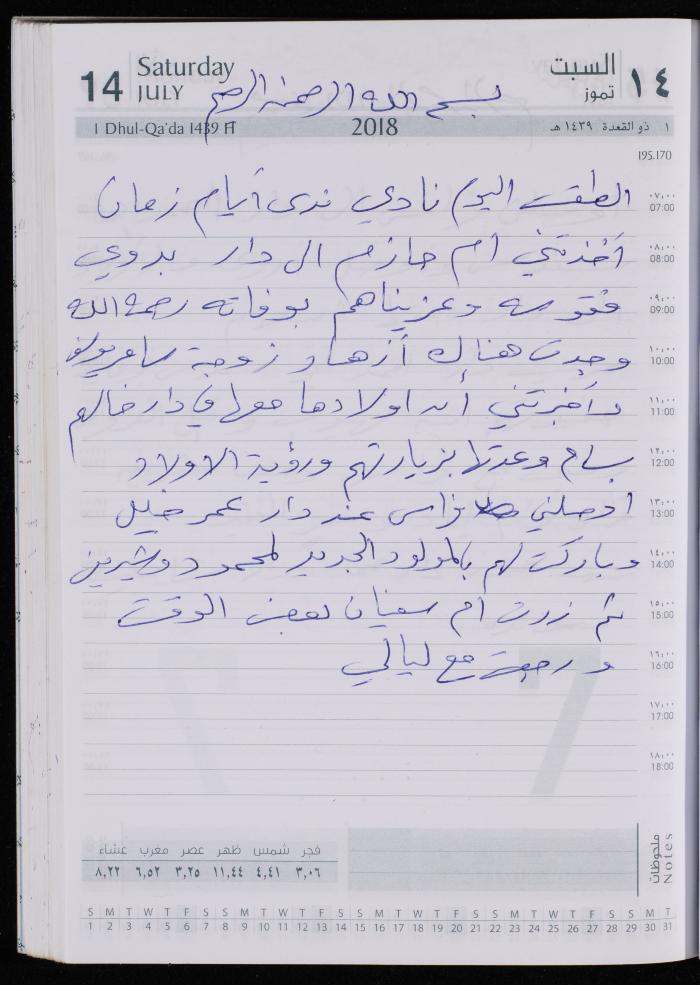 14 Saturday JULY السبت تموز ١٤
بسم الله الرحمن الرحيم
1 Dhul-Qa'da 1439 H 2018 ١ ذو القعدة ١٤٣٩ هـ
195.170
الطقس اليوم نادي ندى أيام زمان
٠٧,٠٠ 07:00
أخذتني أم حازم الى دار بدوي
٠٨,٠٠ 08:00
فقوسه وعزيناهم بوفاته رحمة الله
٠٩,٠٠ 09:00
وجدت هناك أزهار زوجة سامر
١٠,٠٠ 10:00
وأخبرتني أن اولادها معها في دار خالهم
١١,٠٠ 11:00
بسام وعدتها بزيارتهم ورؤية الاولاد
١٢,٠٠ 12:00
اوصلني فراس عند دار عمر خليل
١٣,٠٠ 13:00
وباركت لهم بالمولود الجديد لمحمود وشيرين
١٤,٠٠ 14:00
ثم زرت أم سفيان لبعض الوقت
١٥,٠٠ 15:00
ورجعت مع ليالي
١٦,٠٠ 16:00
١٧,٠٠ 17:00
١٨,٠٠ 18:00
7
ملحوظات Notes
فجر شمس ظهر عصر مغرب عشاء
٣,٠٦ ٤,٤١ ١١,٤٤ ٣,٢٥ ٦,٥٢ ٨,٢٢
S M T W T F S S M T W T F S S M T W T F S S M T W T F S S M T
1 2 3 4 5 6 7 8 9 10 11 12 13 14 15 16 17 18 19 20 21 22 23 24 25 26 27 28 29 30 31